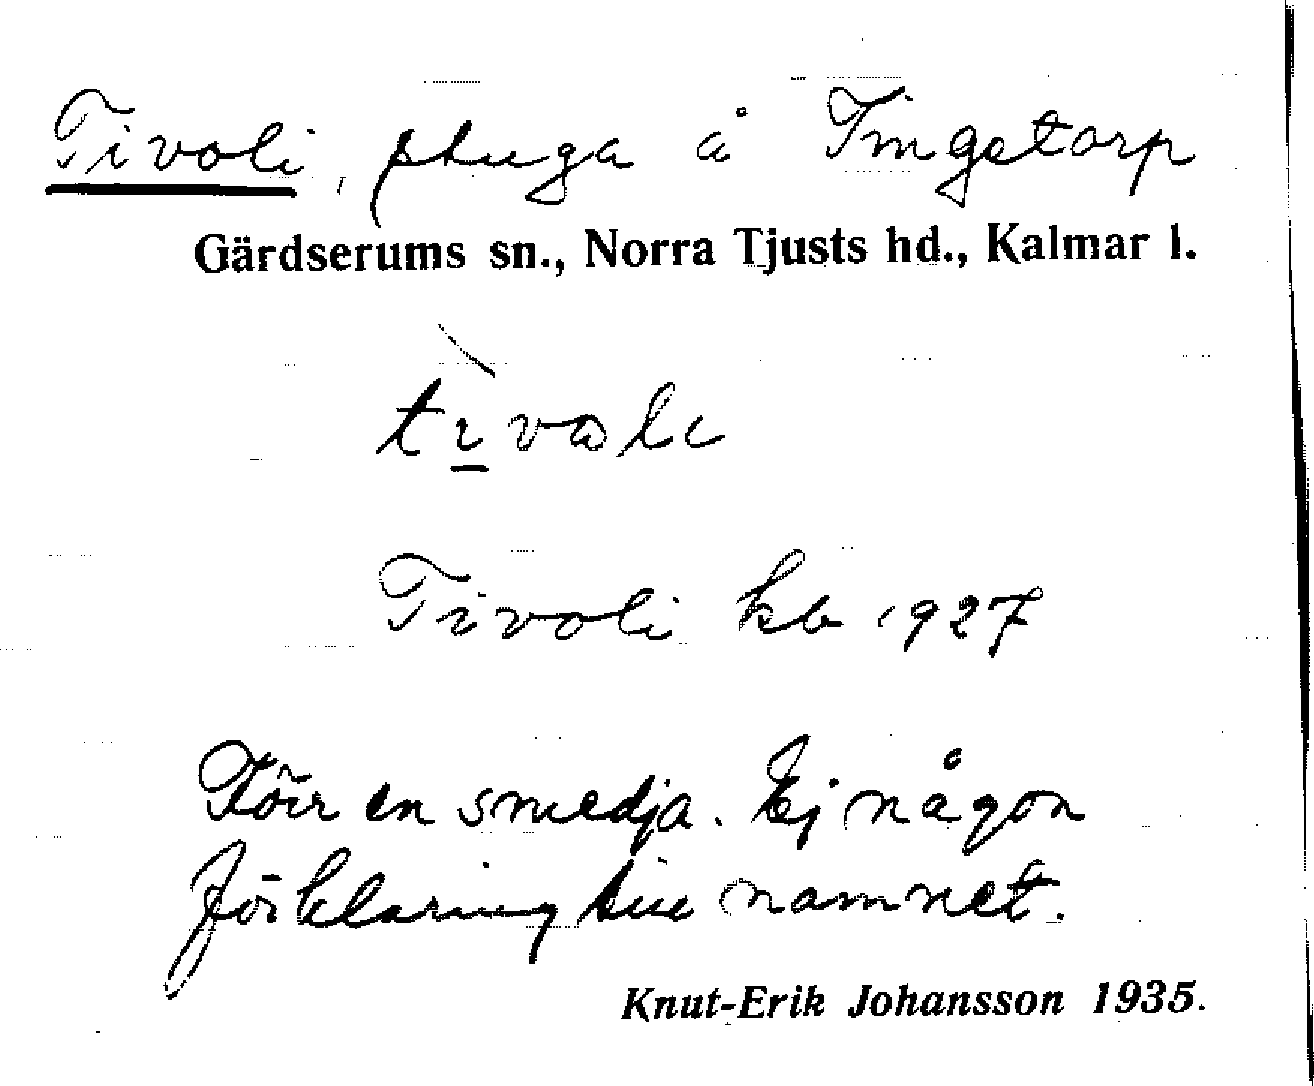 Tivoli, stuga å Tingetorp
Gärdserums sn., Norra Tjusts hd., Kalmar l.
tìvali
Tivoli kb 1927
Förr en smedja. Ej någon
förklaring till namnet.
Knut-Erik Johansson 1935.